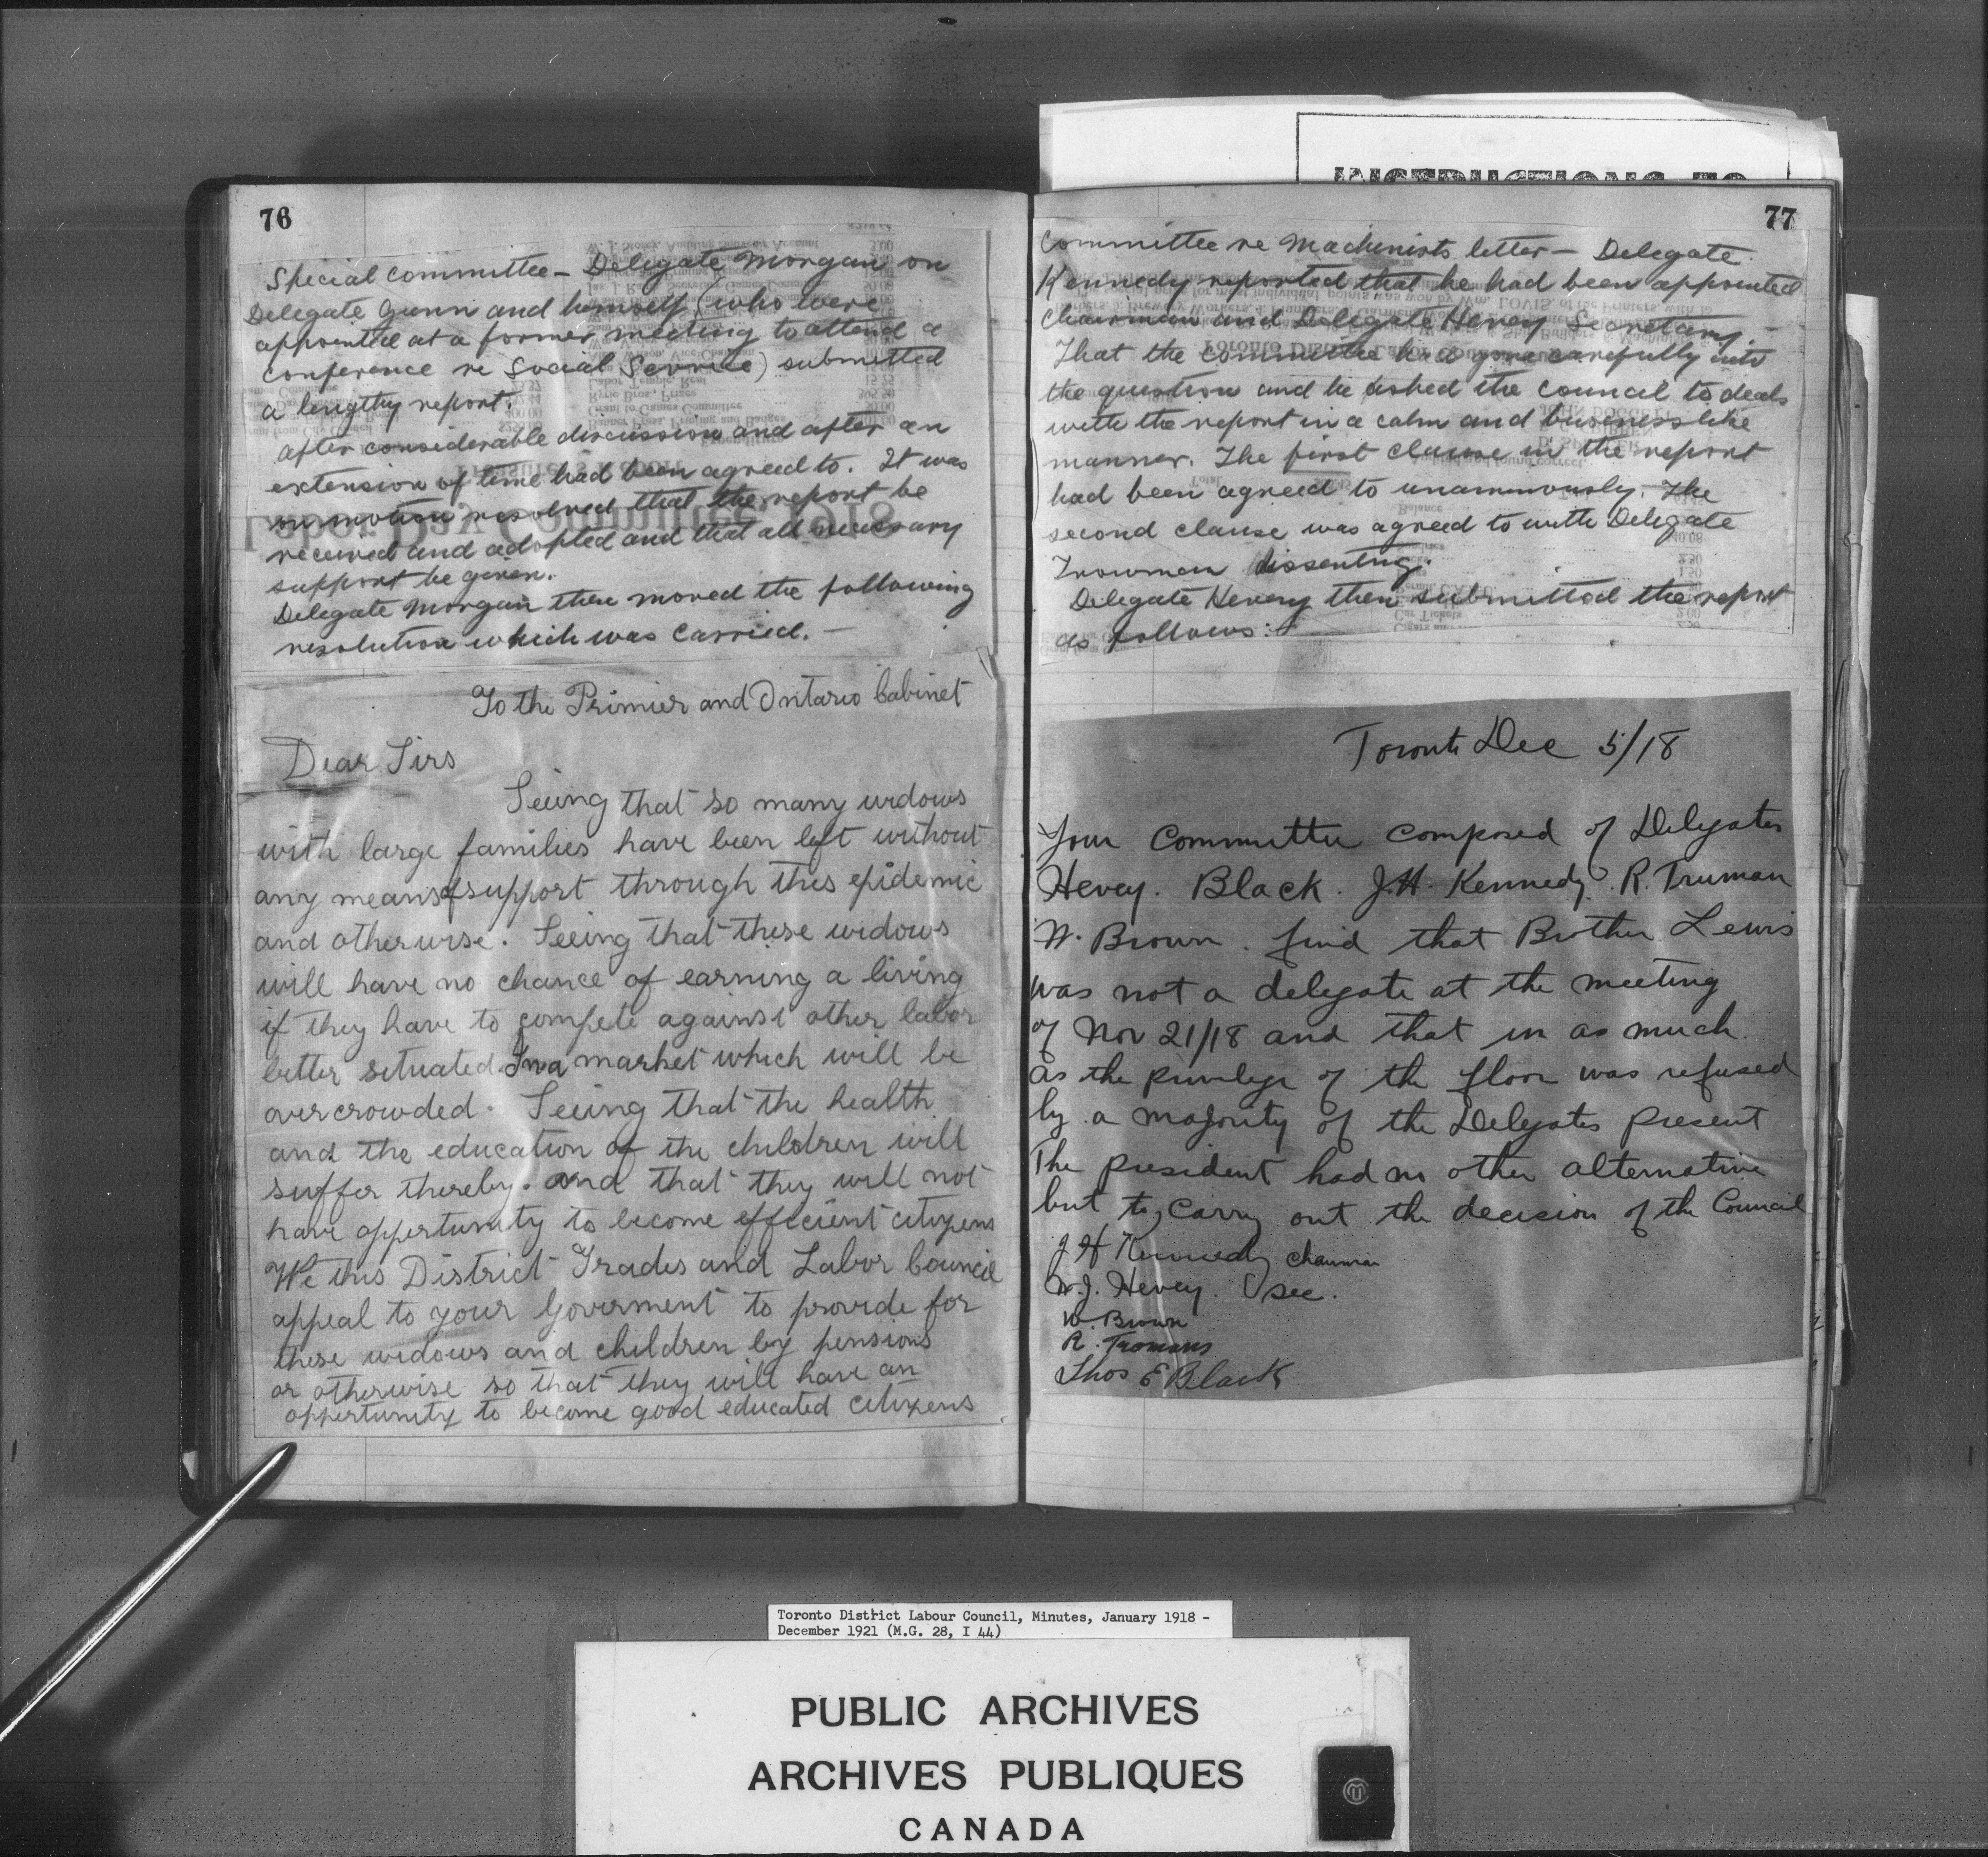 76
Special Committee – Delegate Morgan on
Delegate Gunn and himself, who were
appointed at a former meeting to attend a
conference re Social Service) submitted
a lengthy report.
After considerable discussion and after an
extension of time had been agreed to. It was
on motion resolved that the report be
received and adopted and that all necessary
support be given.
Delegate Morgan then moved the following
resolution which was carried. –
To the Primier and Ontario Cabinet
Dear Sirs
Seeing that so many widows
with large families have been left without
any means of support through this epidemic
and otherwise. Seeing that these widows
will have no chance of earning a living
if they have to compete against other labor
better situated In a market which will be
overcrowded. Seeing that the health
and the education of the children will
suffer thereby. and that they will not
have oppertunity to become efficient citizens
We this District Trades and Labor Council
appeal to your Goverment to provide for
these widows and children by pensions
or otherwise so that they will have an
oppertunity to become good educated citizens
INSTRUCTIONS TO
77
Committee re Machinists letter – Delegate
Kennedy reported that he had been appointed
Chairman and Delegate Hevey Secretary –
That the committee had gone carefully into
the question and he asked the council to deal
with the report in a calm and businesslike
manner. The first clause in the report
had been agreed to unanimously. The
second clause was agreed to with Delegate
Trowman dissenting.
Delegate Hevey then submitted the report
as follows:
Toronto Dec 5/18
Your Committee composed of Delegates
Hevey. Black. J.H. Kennedy. R. Truman
W. Brown. find that Brother Lewis
was not a delegate at the meeting
of Nov 21/18 and that in as much
as the privilege of the floor was refused
by a majority of the Delegates present
The president had no other alternative
but to carry out the decision of the Council
J H Kennedy Chairman
W.J. Hevey. sec.
W. Brown
R. Tromans
Thos E Black
Toronto District Labour Council, Minutes, January 1918 –
December 1921 (M.G. 28, I 44)
PUBLIC ARCHIVES
ARCHIVES PUBLIQUES
CANADA